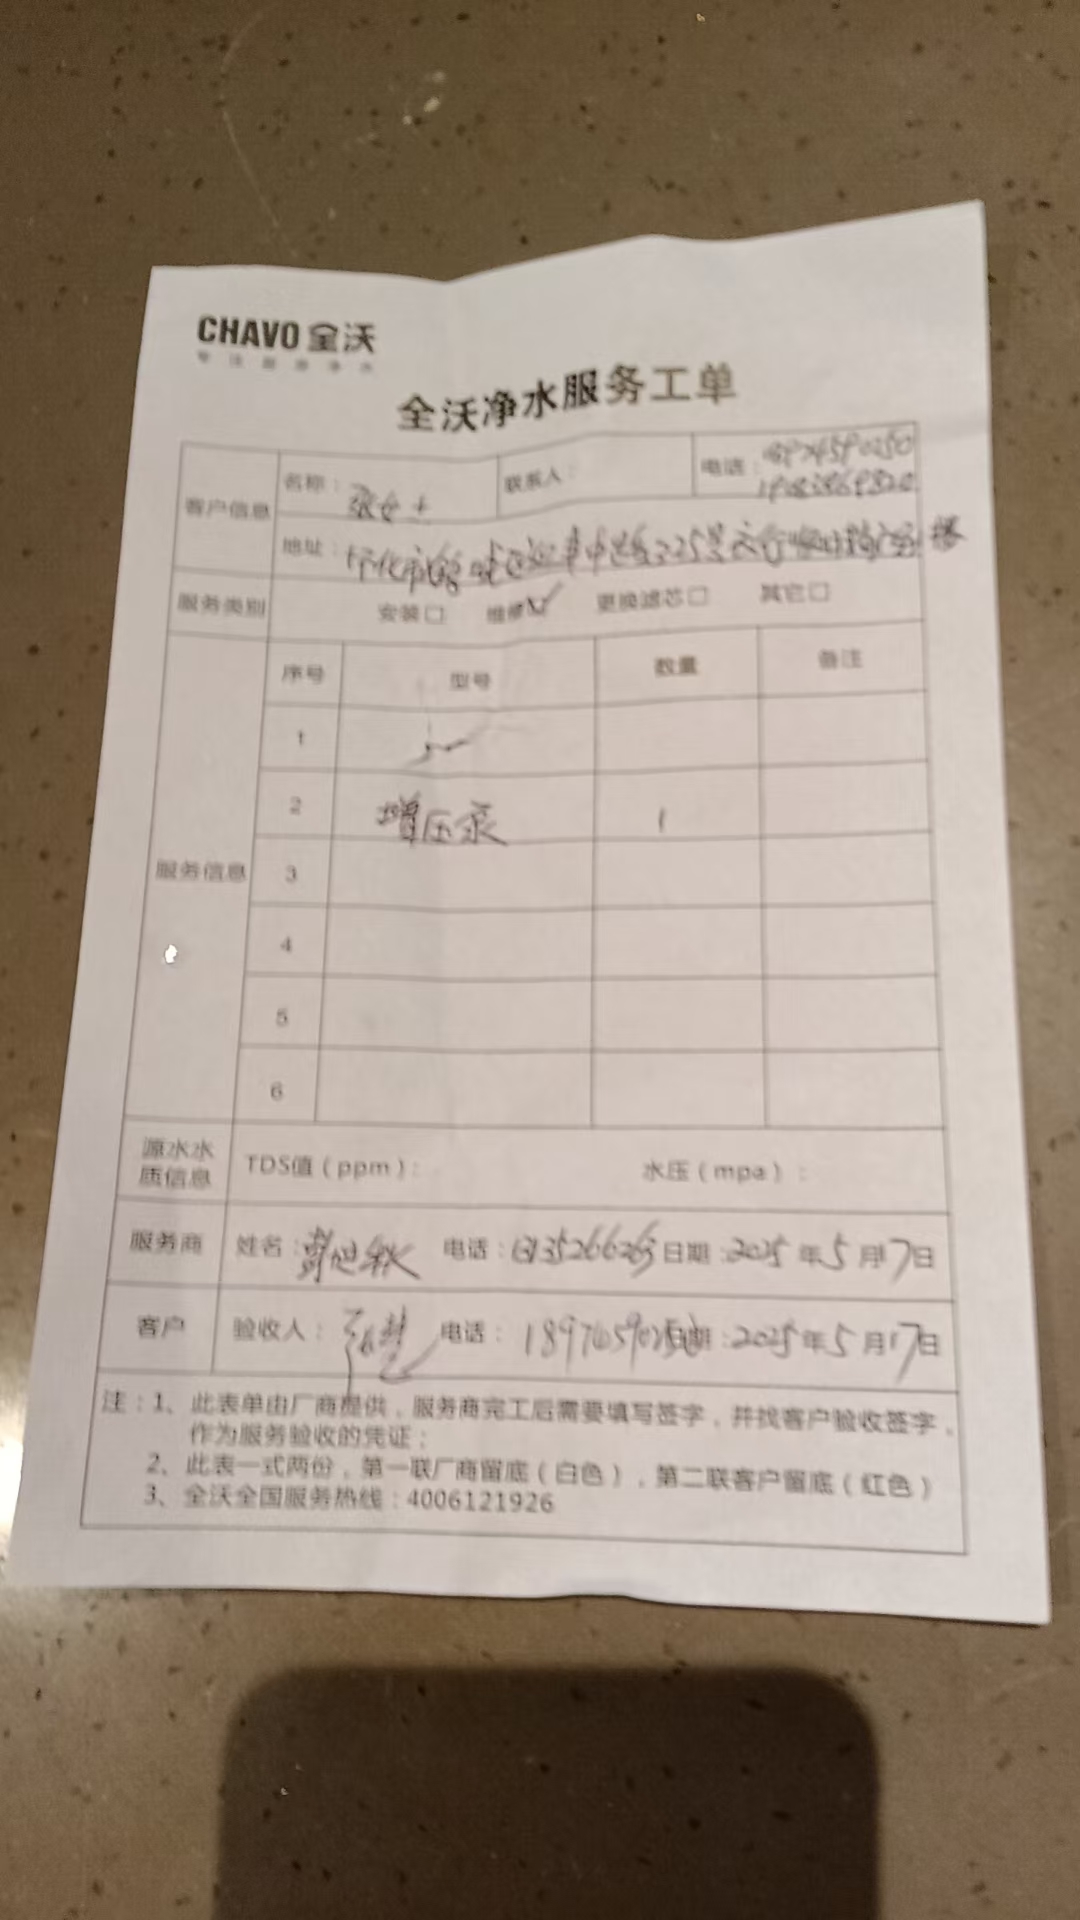 CHAVO 全沃
专注厨房净水
全沃净水服务工单
客户信息
名称：张女士
联系人：
电话：
地址：怀化市鹤城区迎丰中路225号
服务类别
安装□ 维修☑ 更换滤芯□ 其它□
服务信息
序号 型号 数量 备注
1
2 增压泵 1
3
4
5
6
源水水质信息
TDS值（ppm）： 水压（mpa）：
服务商 姓名： 电话： 日期：2025年5月17日
客户 验收人： 电话： 日期：2025年5月17日
注：1、此表单由厂商提供，服务商完工后需要填写签字，并找客户验收签字，
作为服务验收的凭证；
2、此表一式两份，第一联厂商留底（白色），第二联客户留底（红色）
3、全沃全国服务热线：4006121926